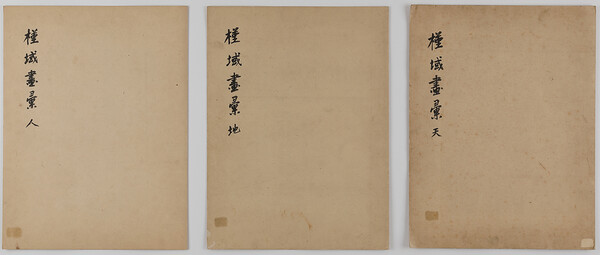 槿域畫彙 天
槿域畫彙 地
槿域畫彙 人